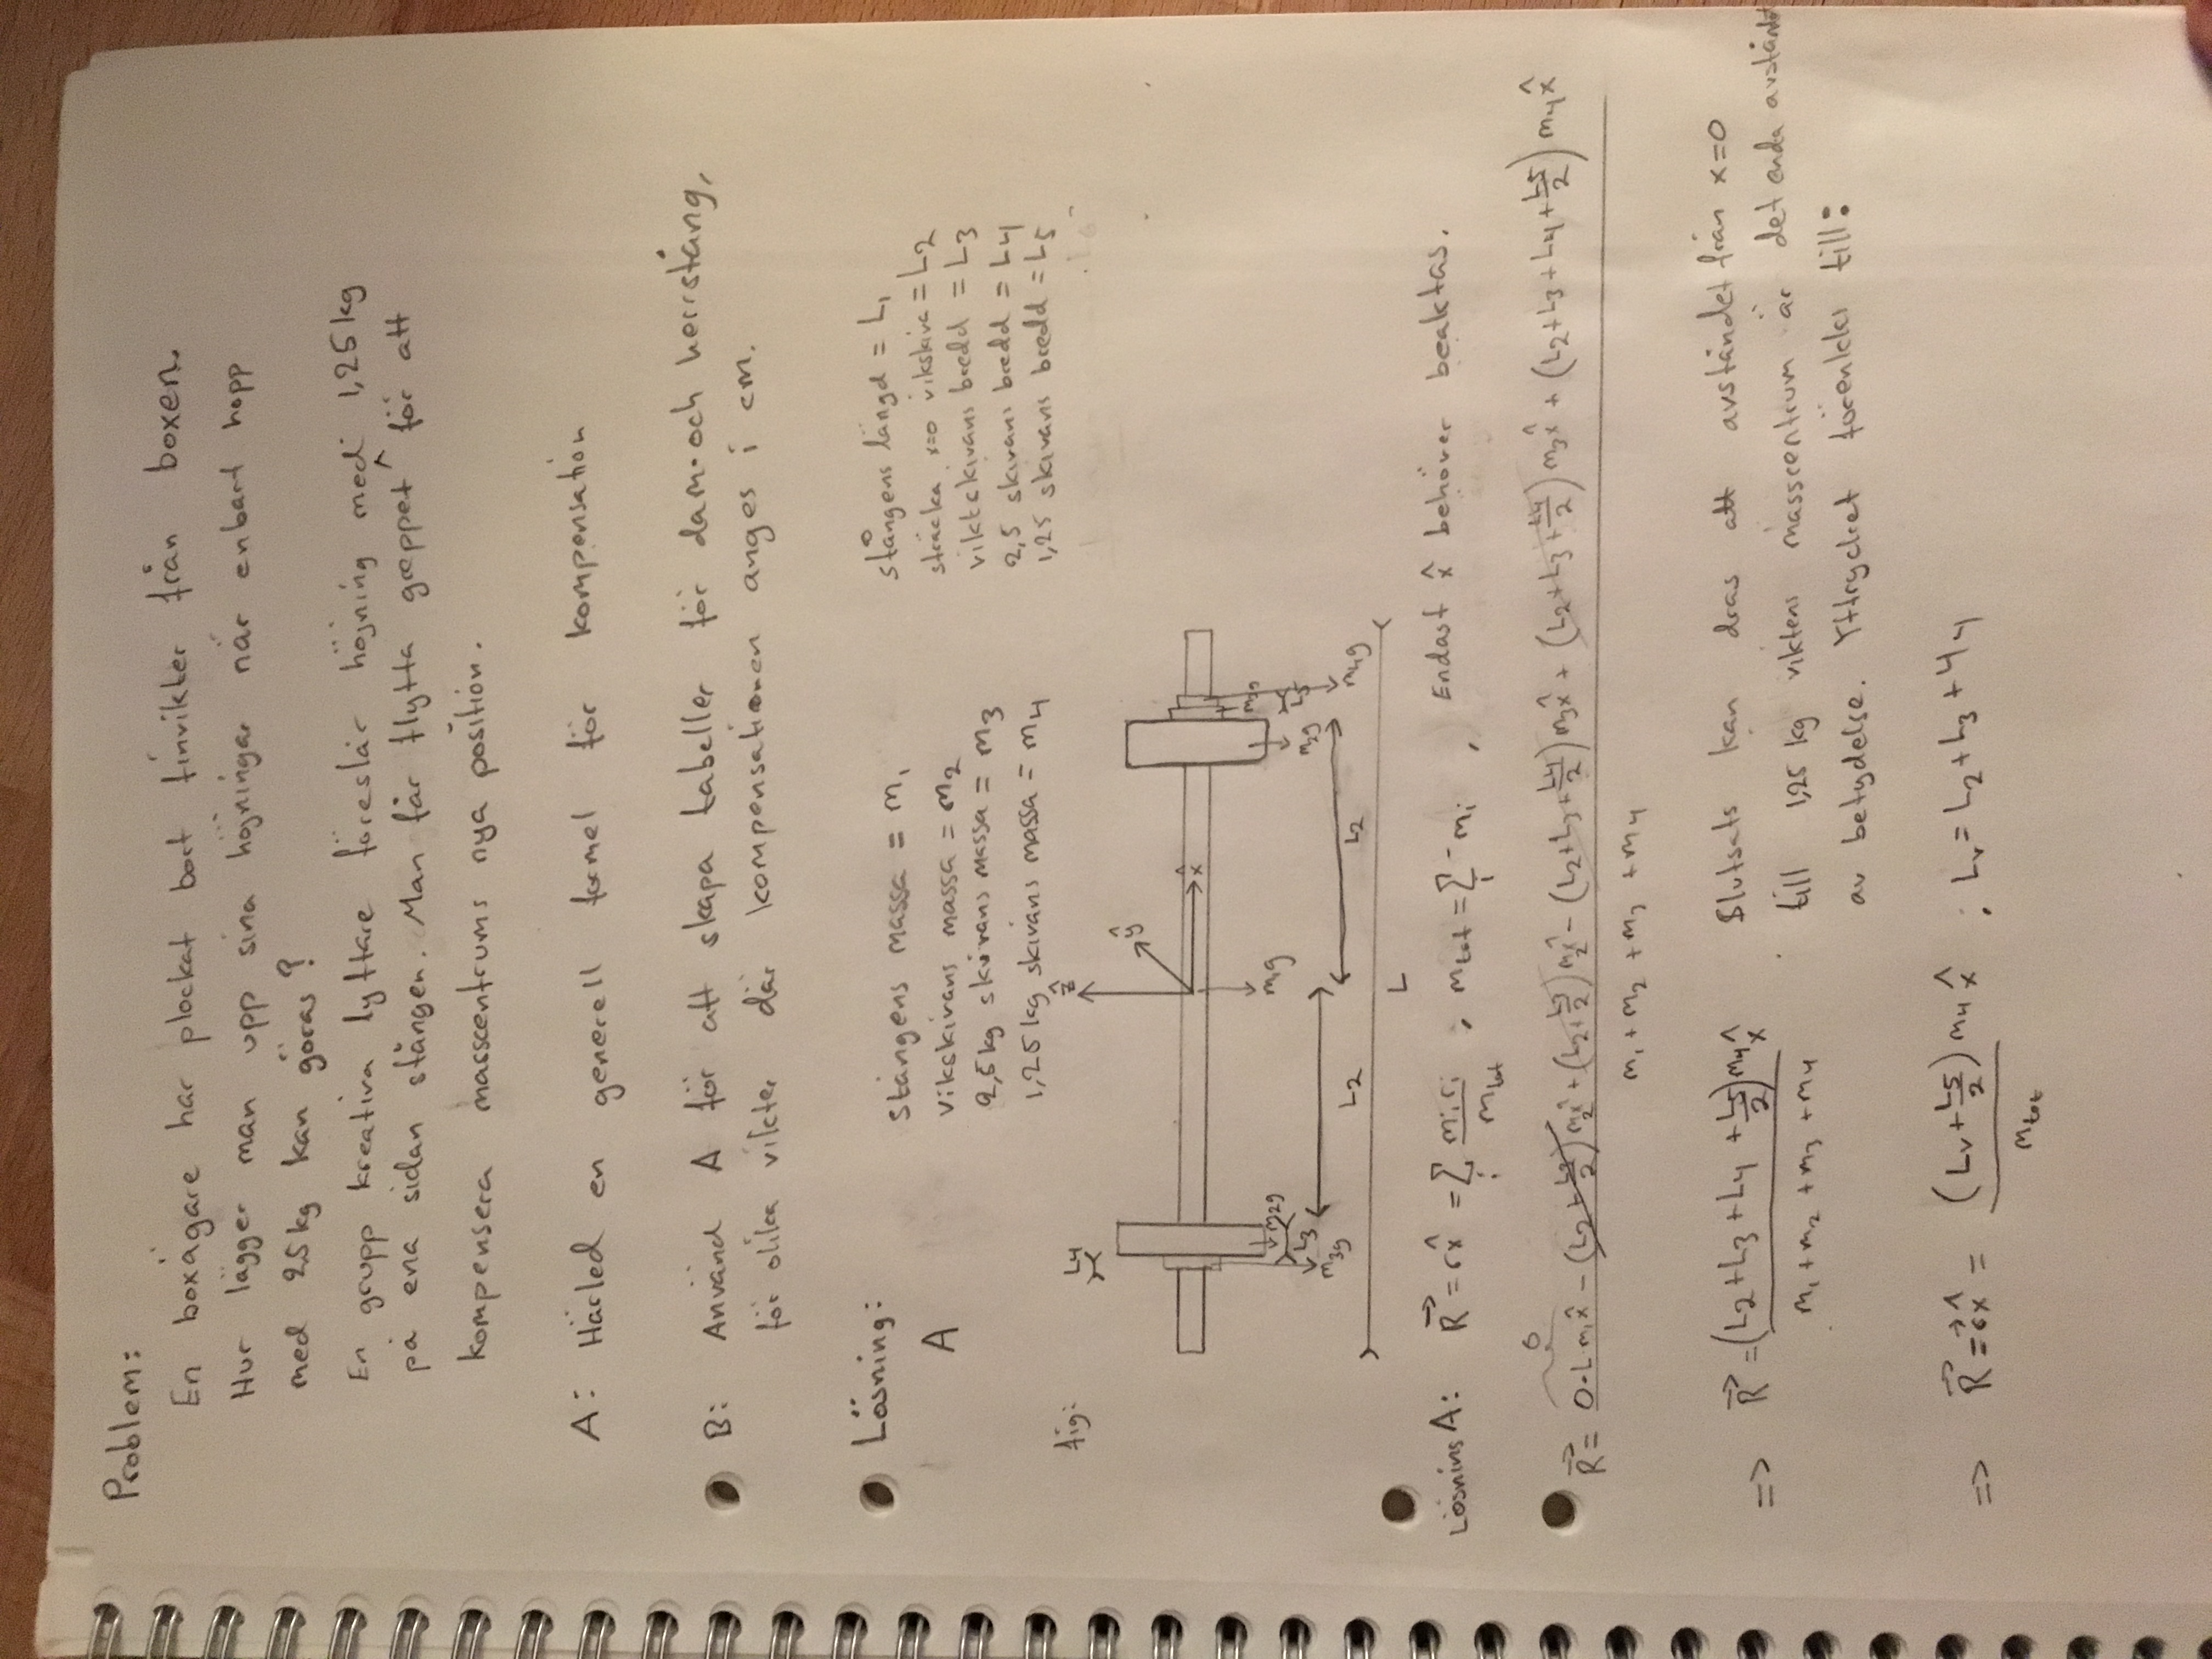 Problem:
En boxägare har plockat bort finvikter från boxen.
Hur lägger man upp sina höjningar när enbart hopp
med 2,5 kg kan göras?
En grupp kreativa lyftare föreslår höjning med 1,25 kg
på ena sidan stången. Man får flytta greppet ^ för att
kompensera masscentrums nya position.
A: Härled en generell formel för kompensation
B: Använd A för att skapa tabeller för dam- och herrstång,
för olika vikter där kompensationen anges i cm.
Lösning:
A
Stångens massa = m₁
vikskivans massa = m₂
2,5 kg skivans massa = m₃
1,25 kg skivans massa = m₄
stångens längd = L₁
sträcka x=0 vikskiva = L2
viktskivans bredd = L3
2,5 skivans bredd = L4
1,25 skivans bredd = L5
fig:
L4
ẑ
ŷ
x̂
m₂g
L3
m₃g
m₁g
m₂g
m₃g
L5
m₄g
L2
L2
L
Lösnins A: R⃗ = rx̂ = Σᵢ mᵢrᵢ / m_tot ; m_tot = Σᵢ mᵢ , Endast x̂ behöver beaktas.
0
R⃗ = 0·L m₁x̂ - (L2 + L3/2) m₂x̂ + (L2 + L3/2) m₂x̂ - (L2+L3+L4/2) m₃x̂ + (L2+L3+L4/2) m₃x̂ + (L2+L3+L4+L5/2) m₄x̂
m₁ + m₂ + m₃ + m₄
=> R⃗ = (L2+L3+L4+L5/2) m₄ x̂
m₁ + m₂ + m₃ + m₄
Slutsats kan dras att avståndet från x=0
till 1,25 kg viktens masscentrum är det enda avståndet
av betydelse. Yttrycket förenklas till:
=> R⃗ = r⃗x̂ = (Lv + L5/2) m₄ x̂ / m_tot ; Lv = L2 + L3 + L4